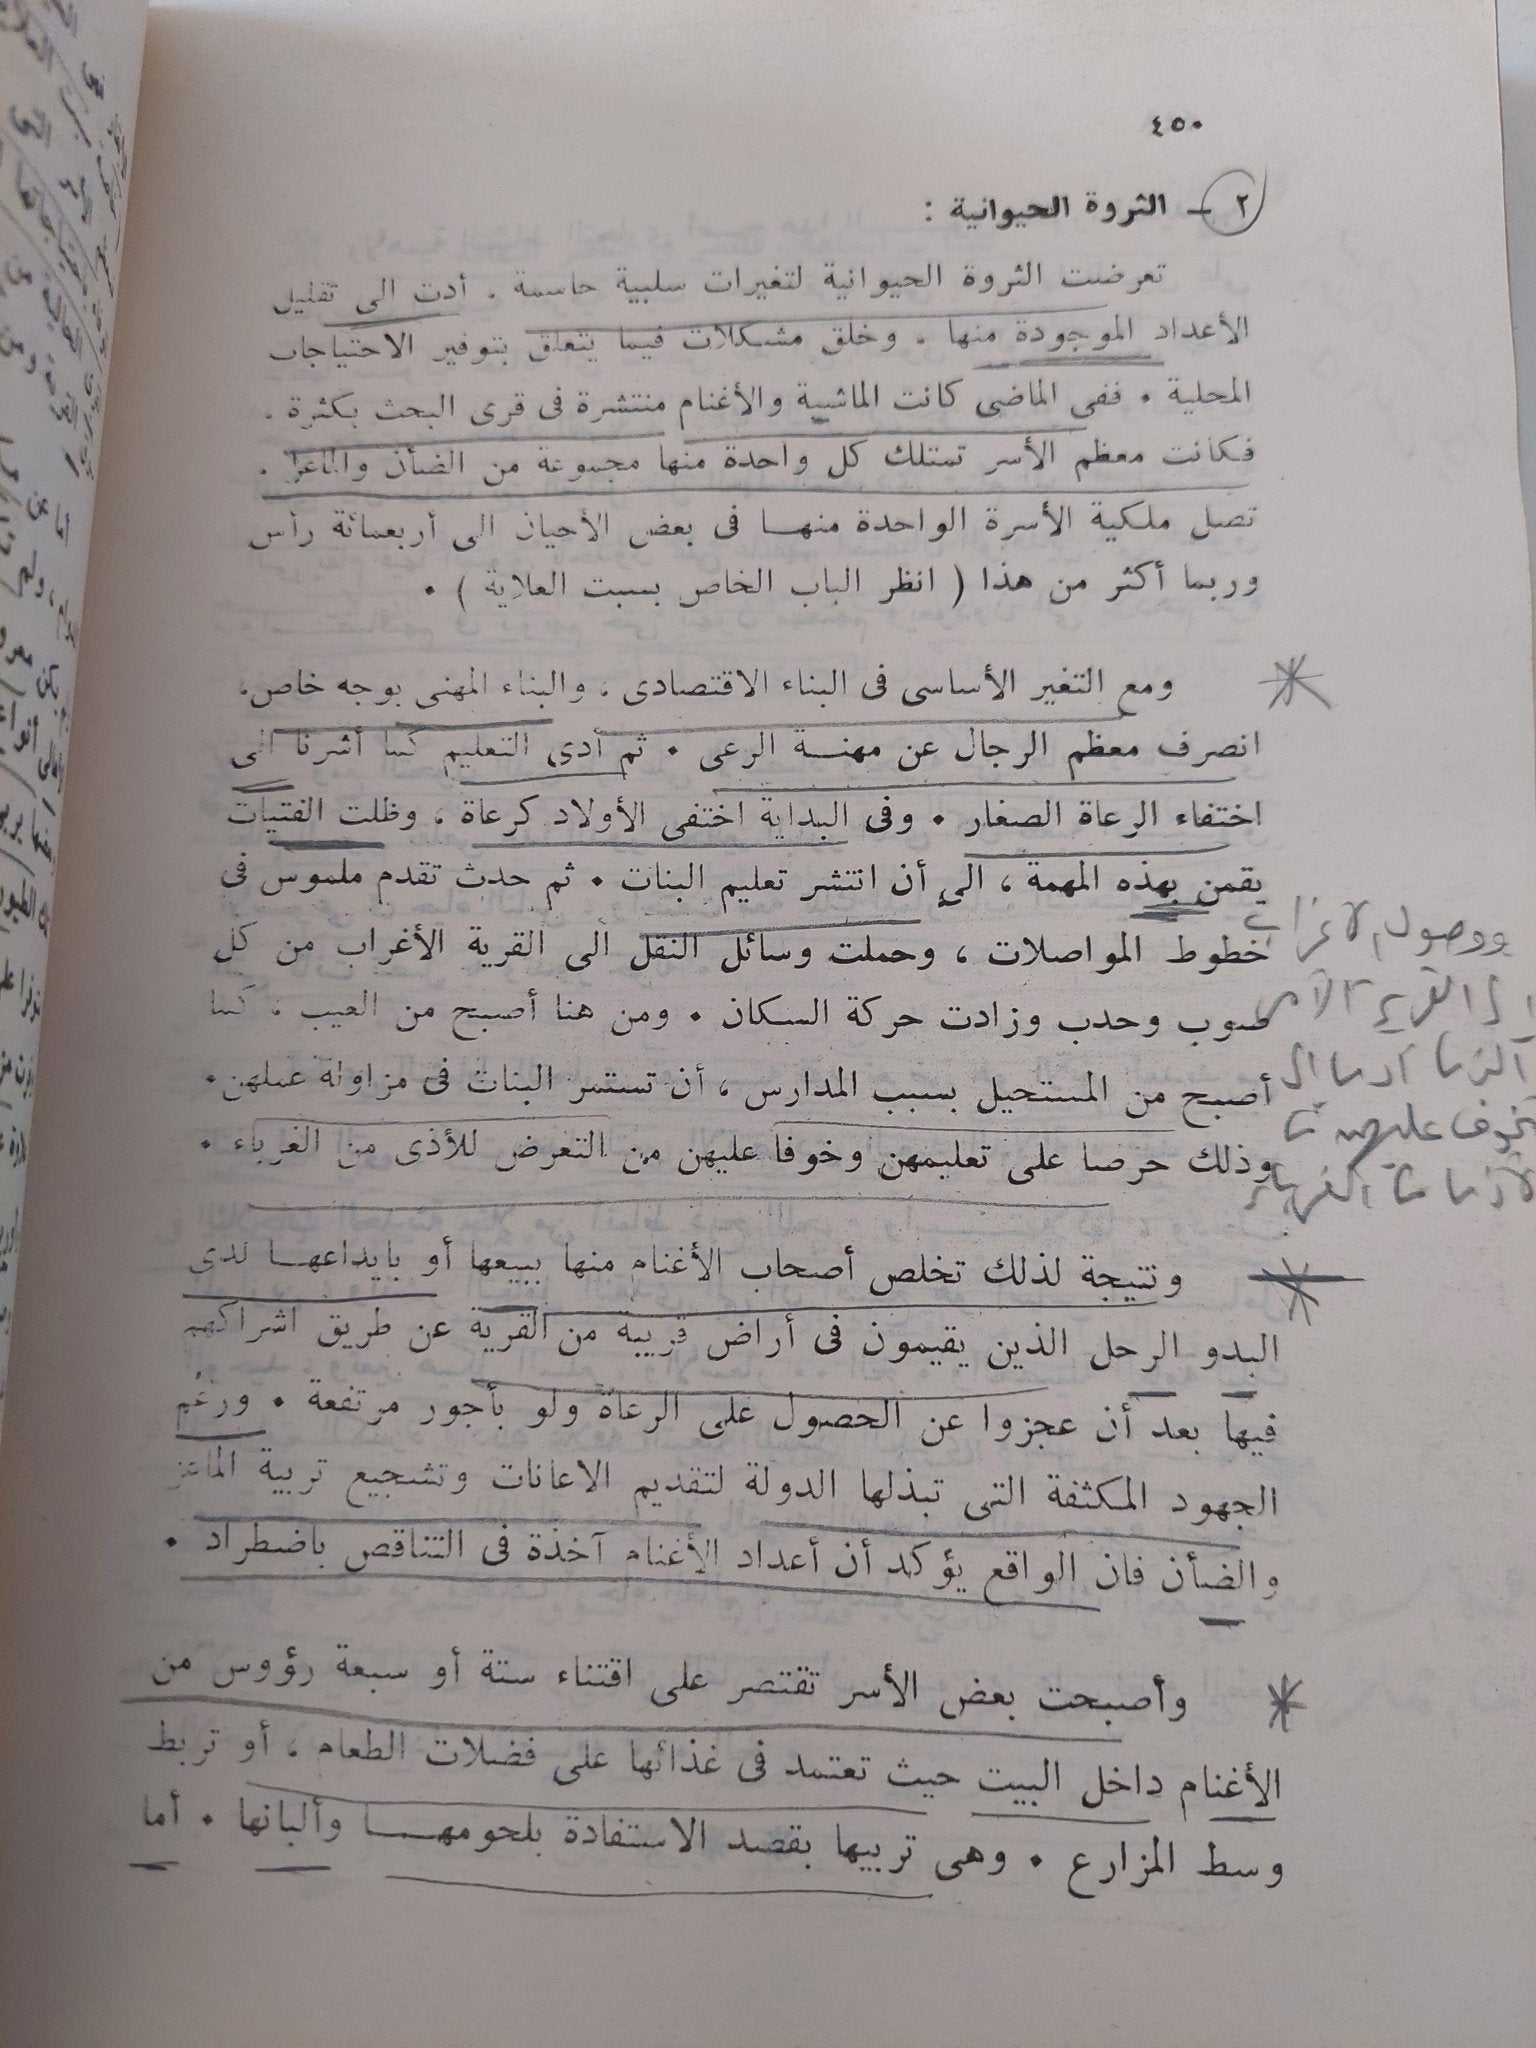 ٤٥٠
٢ – الثروة الحيوانية :
تعرضت الثروة الحيوانية لتغيرات سلبية حاسمة . أدت الى تقليل
الأعداد الموجودة منها . وخلق مشكلات فيما يتعلق بتوفير الاحتياجات
المحلية . ففى الماضى كانت الماشية والأغنام منتشرة فى قرى البحث بكثرة .
فكانت معظم الأسر تمتلك كل واحدة منها مجموعة من الضأن والماعز .
تصل ملكية الأسرة الواحدة منها فى بعض الأحيان الى أربعمائة رأس
وربما أكثر من هذا ( انظر الباب الخاص بسبت العلاية ) .
ومع التغير الأساسى فى البناء الاقتصادى ، والبناء المهنى بوجه خاص،
انصرف معظم الرجال عن مهنة الرعى . ثم أدى التعليم كما أشرنا الى
اختفاء الرعاة الصغار . وفى البداية اختفى الأولاد كرعاة ، وظلت الفتيات
يقمن بهذه المهمة ، الى أن انتشر تعليم البنات . ثم حدث تقدم ملموس فى
خطوط المواصلات ، وحملت وسائل النقل الى القرية الأغراب من كل
صوب وحدب وزادت حركة السكان . ومن هنا أصبح من العيب ، كما
أصبح من المستحيل بسبب المدارس ، أن تستمر البنات فى مزاولة عملهن .
وذلك حرصا على تعليمهن وخوفا عليهن من التعرض للأذى من الغرباء .
ووصول الاغراب
الى القرية الأمر
خوف عليهن من
ونتيجة لذلك تخلص أصحاب الأغنام منها ببيعها أو بايداعها لدى
البدو الرحل الذين يقيمون فى أراض قريبة من القرية عن طريق اشراكهم
فيها بعد أن عجزوا عن الحصول على الرعاة ولو بأجور مرتفعة . ورغم
الجهود المكثفة التى تبذلها الدولة لتقديم الاعانات وتشجيع تربية الماعز
والضأن فان الواقع يؤكد أن أعداد الأغنام آخذة فى التناقص باضطراد .
وأصبحت بعض الأسر تقتصر على اقتناء ستة أو سبعة رؤوس من
الأغنام داخل البيت حيث تعتمد فى غذائها على فضلات الطعام ، أو تربط
وسط المزارع . وهى تربيها بقصد الاستفادة بلحومها وألبانها . أما